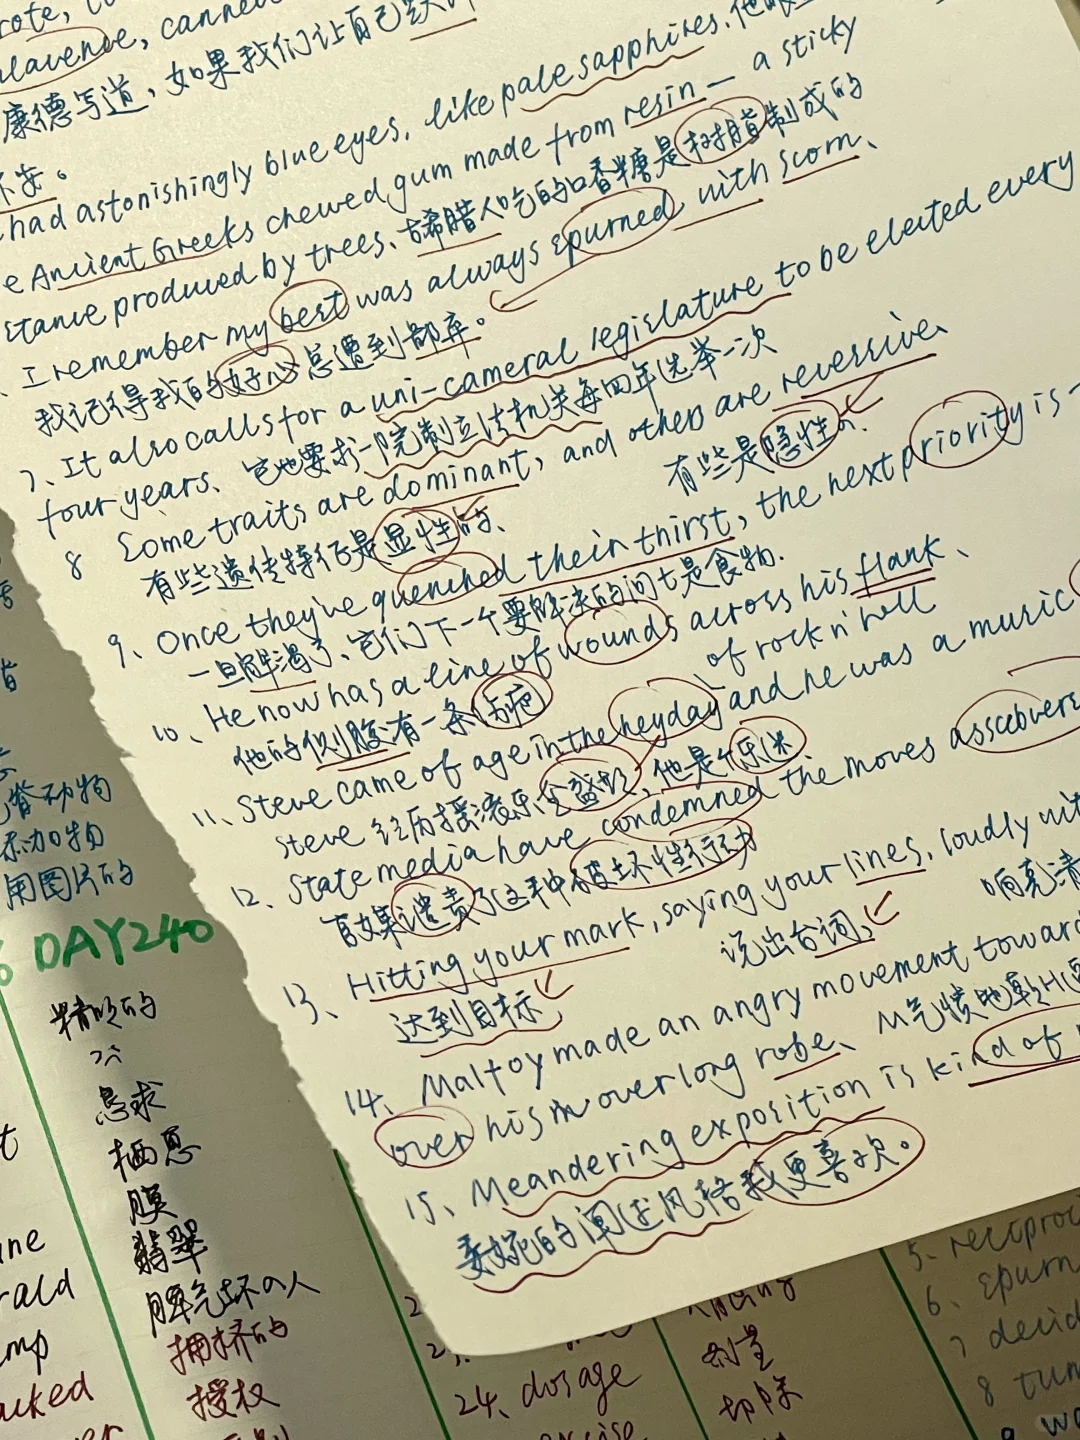 rote,
康德写道，如果我们让自己
had astonishingly blue eyes, like pale sapphires.
不安。
e Ancient Greeks chewed gum made from resin — a sticky
stance produced by trees、古希腊人吃的口香糖是树脂制成的
I remember my best was always spurned with scorn、
我记得我的好心总遭到鄙弃。
7、It also calls for a uni-cameral legislature to be elected every
four years、它也要求一院制立法机关每四年选举一次
8 Some traits are dominant, and others are recessive、
有些遗传特征是显性的、
有些是隐性的.
9、Once they've quenched their thirst, the next priority is
一旦解渴了、它们下一个要解决的问题是食物.
10、He now has a line of wounds across his flank、
他的侧腹有一条伤疤
11、Steve came of age in the heyday of rock n' roll and he was a music
Steve 经历摇滚乐全盛期、他是个乐迷
12、State media have condemned the moves as
官媒谴责了这种破坏性行动
13、Hitting your mark, saying your lines, loudly
达到目标
说出台词、
响亮清
14、Malfoy made an angry movement
over his overlong robe、M气愤地
15、Meandering exposition is kind of
委婉的阐述风格我更喜欢。
脊动物
添加物
用图片的
DAY240
精致的
恳求
栖息
膜
翡翠
脾气坏的人
拥挤的
授权
24、dosage
剂量
切除
5、recipro
6、spurn
7 decid
8 tun